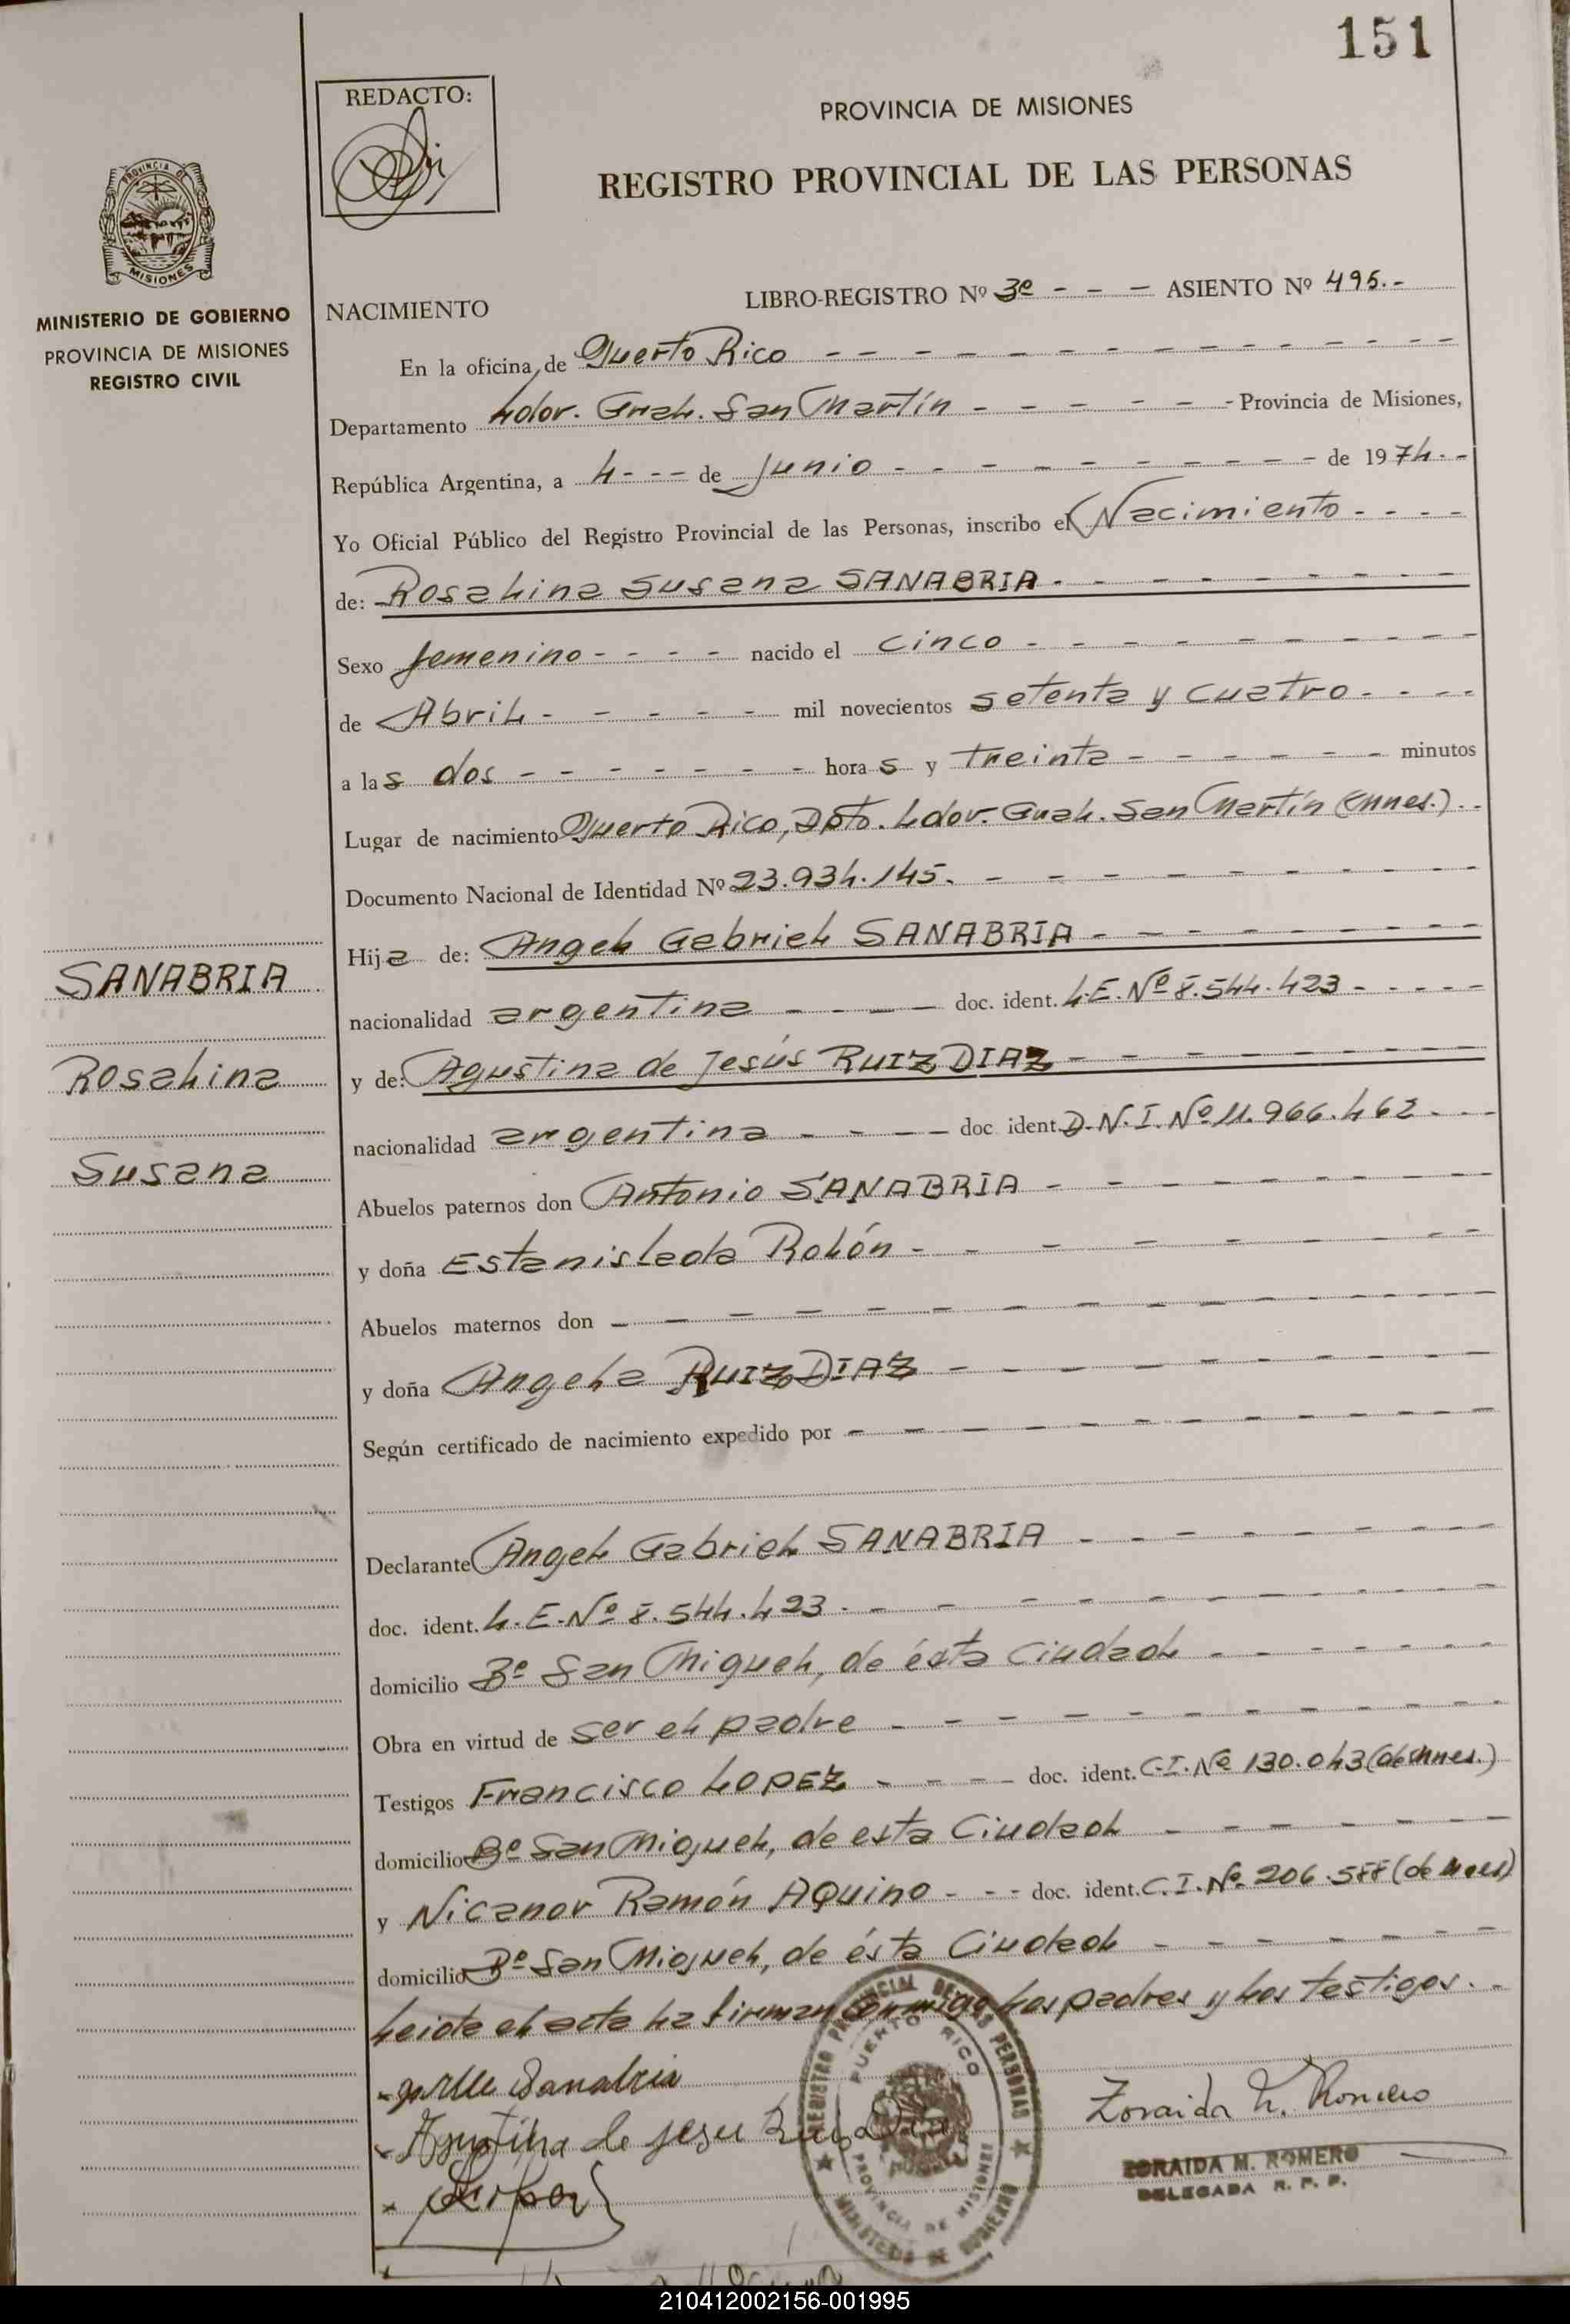 151
REDACTO:
PROVINCIA DE MISIONES
REGISTRO PROVINCIAL DE LAS PERSONAS
PROVINCIA DE
MISIONES
MINISTERIO DE GOBIERNO
PROVINCIA DE MISIONES
REGISTRO CIVIL
NACIMIENTO LIBRO-REGISTRO Nº 3º - - - ASIENTO Nº 495.-
En la oficina de Puerto Rico - - - - - - - - - - - - -
Departamento Ldor. Gral. San Martín - - - - - - Provincia de Misiones,
República Argentina, a 4 - - - de Junio - - - - - - - - - de 1974.-
Yo Oficial Público del Registro Provincial de las Personas, inscribo el Nacimiento - - - -
de: Rosalina Susana SANABRIA - - - - - - - -
Sexo femenino - - - - nacido el cinco - - - - - - - - -
de Abril - - - - - mil novecientos setenta y cuatro - - - -
a las dos - - - - - - - horas y treinta - - - - - - minutos
Lugar de nacimiento Puerto Rico, Dpto. Ldor. Gral. San Martín (Mnes.). -
Documento Nacional de Identidad Nº 23.934.145. - - - - - - - - -
Hija de: Angel Gabriel SANABRIA - - - - - - - - -
nacionalidad argentina - - - - doc. ident. L.E. Nº 8.544.423 - - - - -
y de: Agustina de Jesús RUIZ DIAZ - - - - - - - - -
nacionalidad argentina - - - - doc ident D.N.I. Nº 11.966.462. - -
Abuelos paternos don Antonio SANABRIA - - - - - - - -
y doña Estanislada Rolón - - - - - - - -
Abuelos maternos don - - - - - - - - - - - - -
y doña Angela RUIZ DIAZ - - - - - - - - -
Según certificado de nacimiento expedido por - - - - - - - - - - -
Declarante Angel Gabriel SANABRIA - - - - - - - - -
doc. ident. L.E. Nº 8.544.423. - - - - - - - - - -
domicilio Bº San Miguel, de ésta Ciudad - - - - - - -
Obra en virtud de ser el padre - - - - - - - - - - -
Testigos Francisco LOPEZ - - - - doc. ident. C.I. Nº 130.043 (de Mnes.)
domicilio Bº San Miguel, de esta Ciudad - - - - - -
y Nicanor Ramón AQuino - - - doc. ident. C.I. Nº 206.588 (de Mnes)
domicilio Bº San Miguel, de ésta Ciudad - - - - - - -
Leida el acta la firman conmigo los padres y los testigos. -
SANABRIA
Rosalina
Susana
Sanabria
Agustina de Jesu Ruis Dias
Lopez
Zoraida M. Romero
ZORAIDA M. ROMERO
DELEGADA R. P. P.
REGISTRO PROVINCIAL DE LAS PERSONAS
PUERTO RICO
PROVINCIA DE MISIONES
MINISTERIO DE GOBIERNO
210412002156-001995